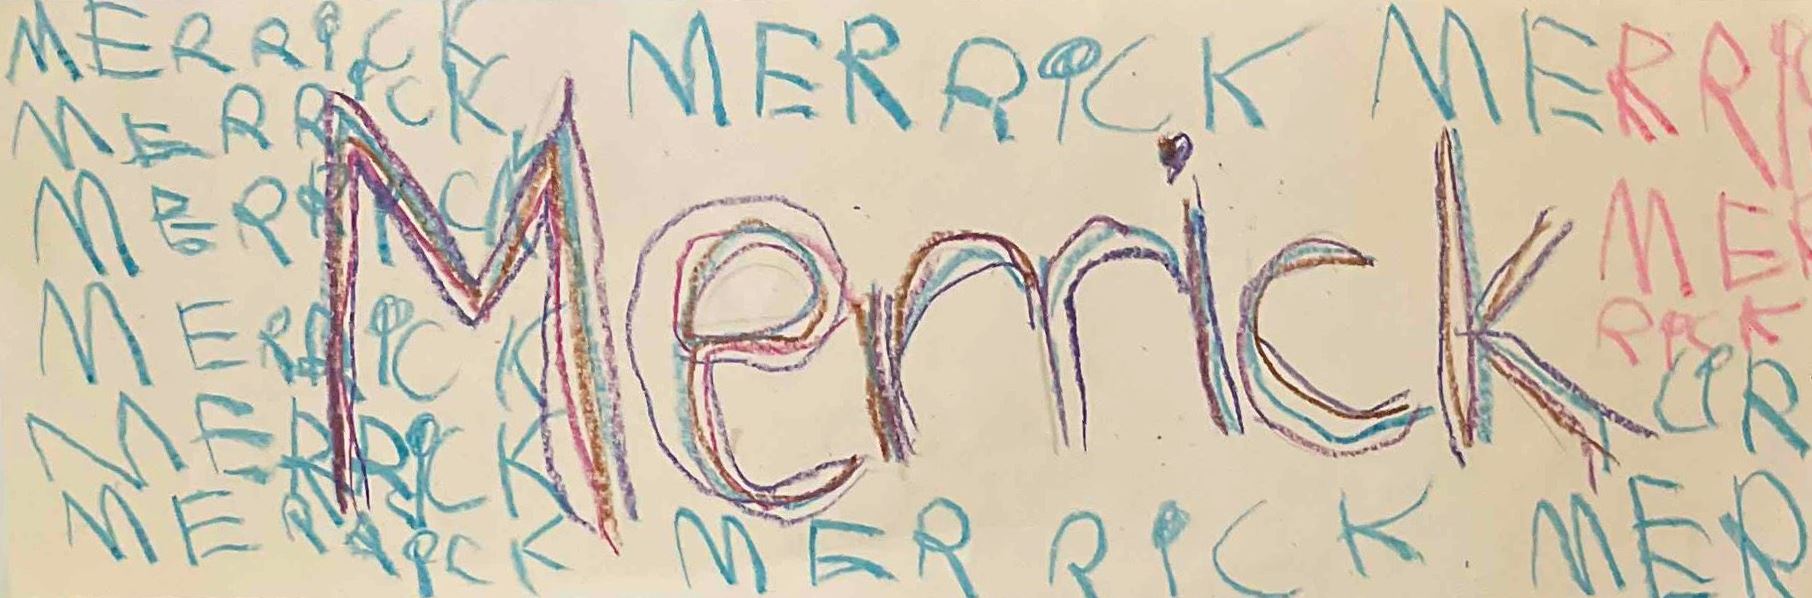 MERRICK MERRICK MERRIC
MERRICK
MERRICK MER
Merrick
MERRICK RICK
MERRICK
MERRICK MERRICK MER